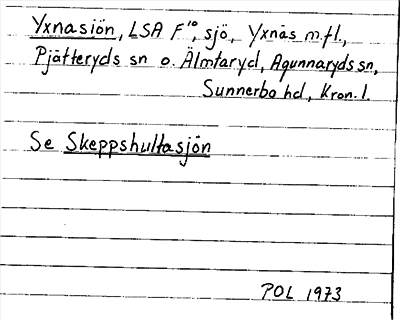 Yxnasjön, LSA F¹⁰, sjö, Yxnäs m.fl.,
Pjätteryds sn o. Älmtaryd, Agunnaryds sn,
Sunnerbo hd, Kron. l.
Se Skeppshultasjön
POL 1973